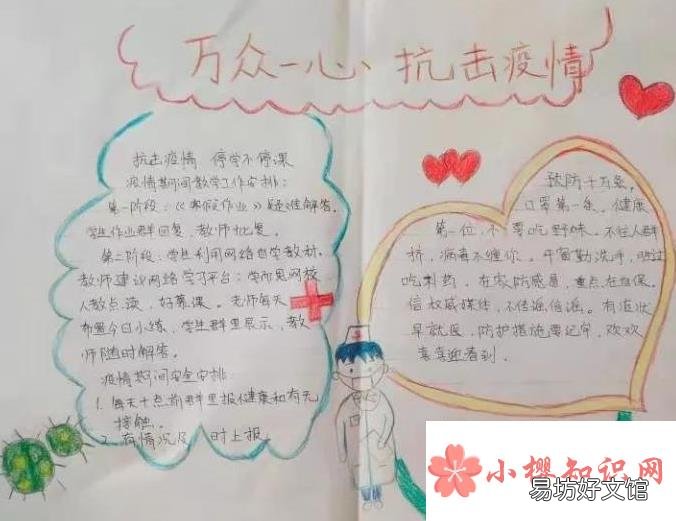 万众一心、抗击疫情
抗击疫情 停学不停课
疫情期间教学工作安排：
第一阶段：《寒假作业》疑难解答。
学生作业群回复，教师批复。
第二阶段：学生利用网络自学教材，
教师建议网络学习平台：学而思网校
人教点读，好慕课。老师每天
布置今日小练，学生群里展示，教
师随时解答。
疫情期间安全安排
1. 每天十点前群里报健康和有无
接触。
2. 有情况及 时上报。
预防千万条，
口罩第一条。健康
第一位，不要吃野味。不往人群
挤，病毒不缠你。干
勤洗手，
吃补药，在家防感冒，重点在自保。
信权威媒体，不传谣信谣。有症状
早就医，防护措施要记牢，欢欢
喜喜迎春到。
小樱知识网
易坊好文馆